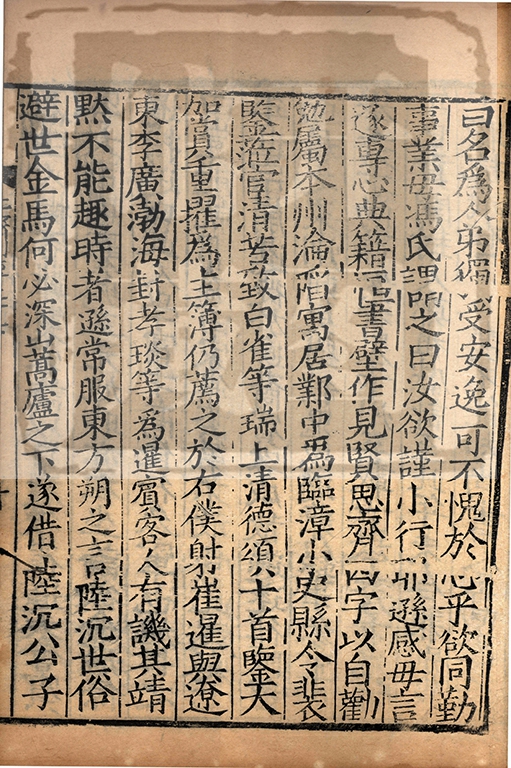 曰名爲人弟獨受安逸可不愧於心乎欲同勤
事業母馮氏謂之曰汝欲謹小行耶遜感母言
遂專心典籍恒書壁作見賢思齊四字以自勸
勉屬本州淪陷寓居鄴中爲臨漳小史縣令裴
鑒蒞官清苦致白雀等瑞上清德頌十首鑒大
加賞重擢爲主簿仍薦之於右僕射崔暹與遼
東李廣渤海封孝琰等爲暹賓客人有譏其靖
黙不能趣時者遜常服東方朔之言陸沉世俗
避世金馬何必深山蒿廬之下遂借陸沉公子